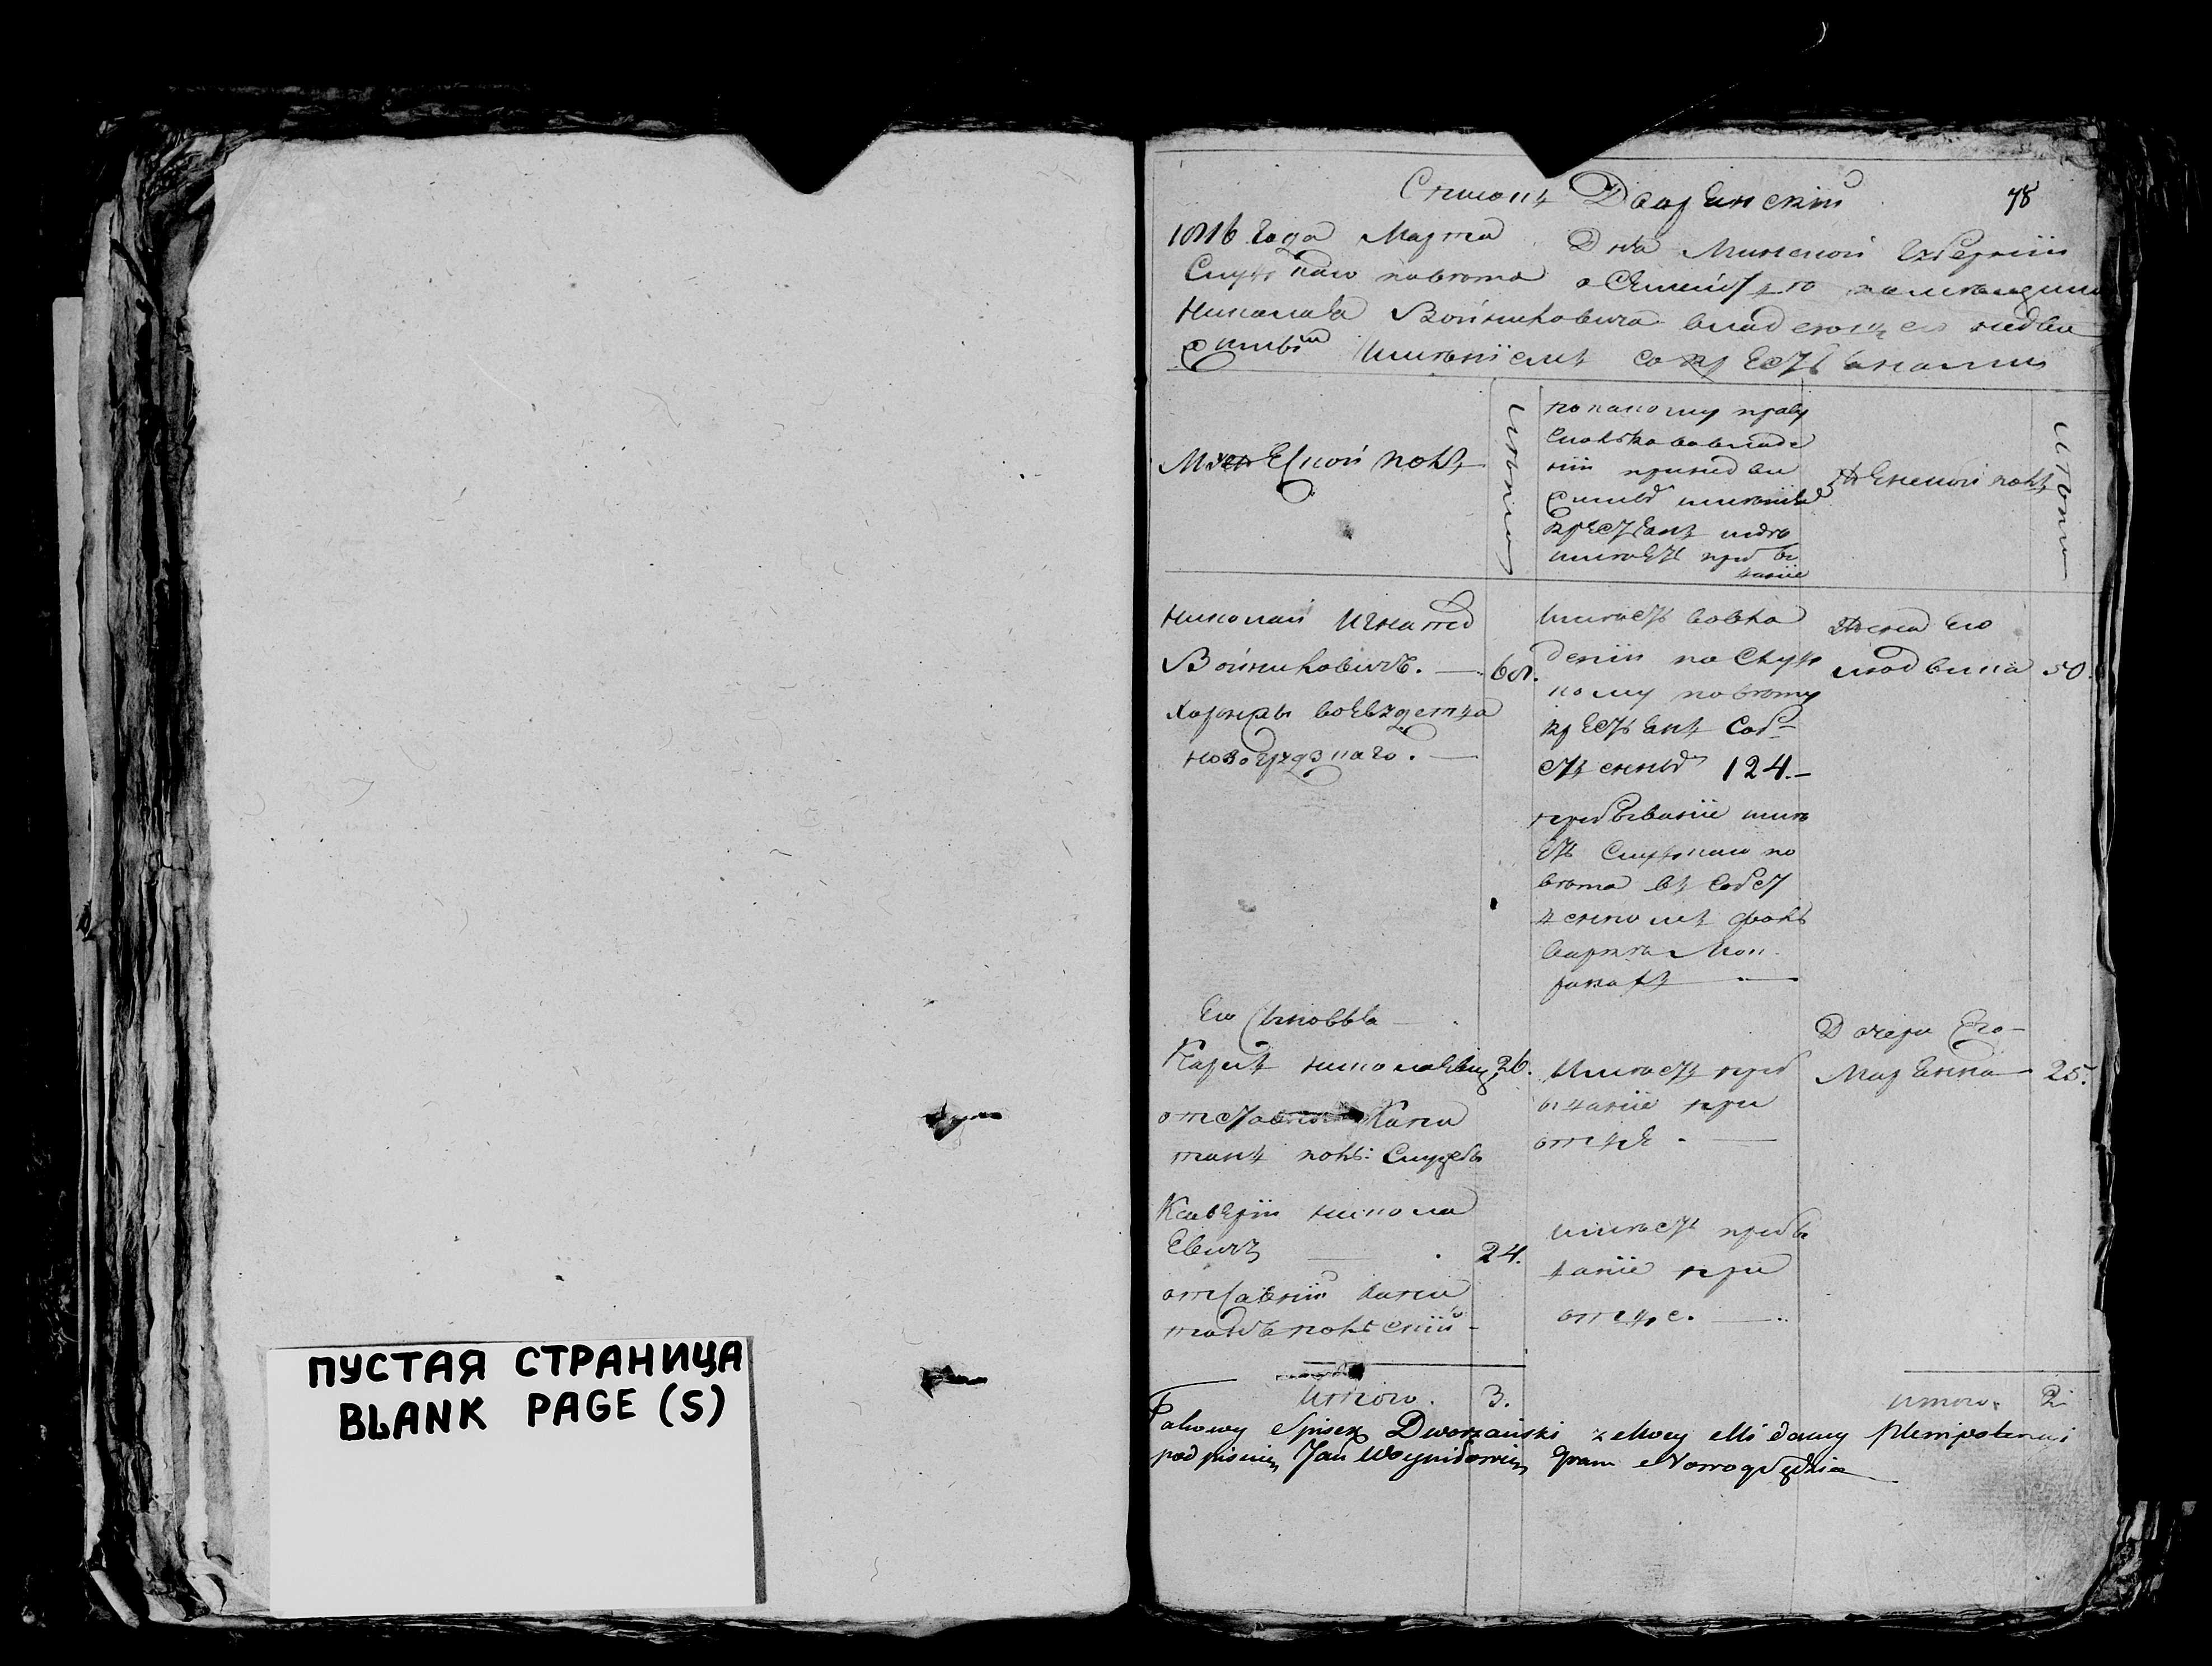 ПУСТАЯ СТРАНИЦА
BLANK PAGE (S)
Списокъ Дворянскій
78
1816 Года Марта Дня Минской Губерніи
Слуцкаго повѣта о Семействѣ
Николая Войниловича владеющего недви
имѣніемъ со крестьянами
Мужеской полъ
Лѣта
по какому праву
сколько во владе
ніи недви
имѣнія
крестьянъ и где
имѣетъ пребы
ваніе
Женской полъ
Лѣта
Николай Игнатов
Войниловичъ. — 68.
Хоружы воеводства
новогрудзкаго. —
имѣетъ во вла
деніи по Слуц
кому повѣту
крестьянъ Соб
ственныхъ 124.—
пребываніе имѣ
етъ Слуцкаго по
вѣта въ Собст
венномъ фоль
варкѣ
Жена Его
Людвика 50.
Его Сыновья
Кароль Николаевичъ 26.
отставной Капи
танъ поль: Службы
Имѣетъ преб
ываніе при
отцѣ. —
Дочери Его—
Марьянна 25.
Ксаверій Никола
евичъ — 24.
отставній капи
танъ польскій
имѣетъ пребы
ваніе при
отце. —
Итого. 3.
Итого. 2
Takowy Spisek Dworzański z Mocy Mi daney Plenipotencii
podpisuię Jan Woyniłowicz